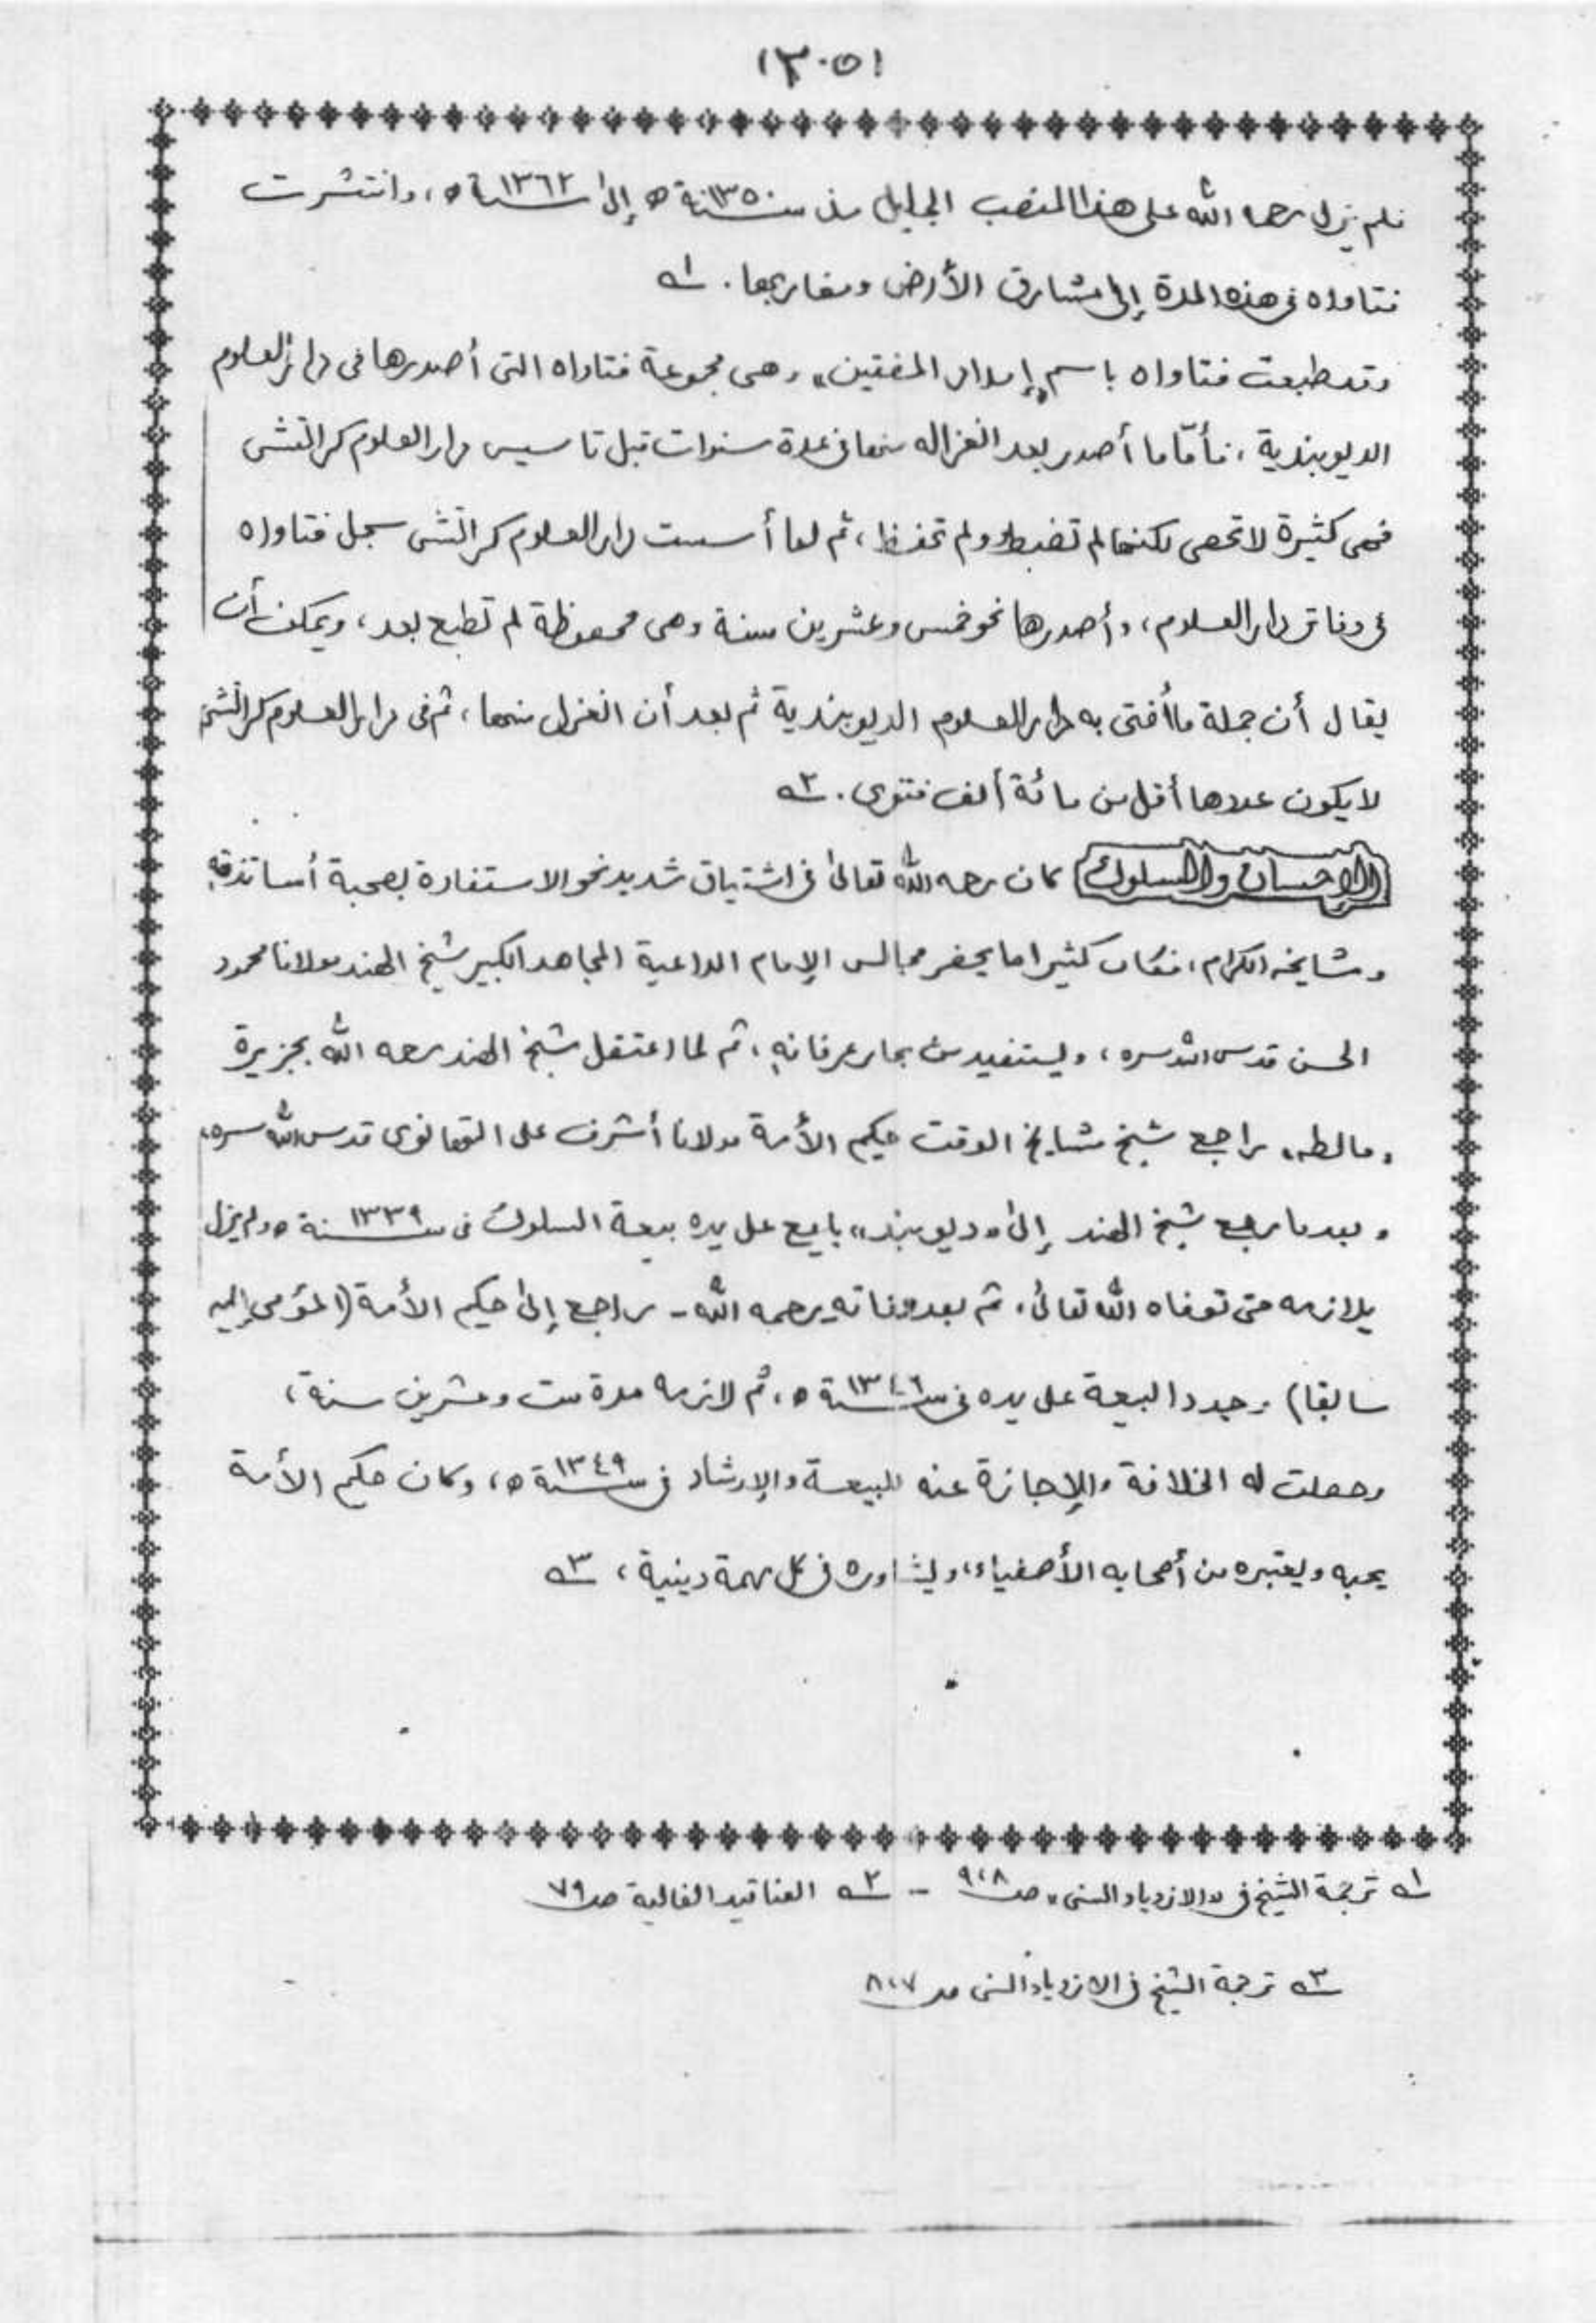 (٣٠٥)
فلم يزل رحمه الله على هذا المنصب الجليل من سنة ١٣٥٠ه إلى سنة ١٣٦٢ه، وانتشرت
فتاواه فى هذه المدة إلى مشارق الأرض ومغاربها. ١ه
وقد طبعت فتاواه باسم "إمداد المفتين" وهى مجموعة فتاواه التى أصدرها فى دار العلوم
الديوبندية، فأمّا ما أصدر بعد انعزاله منها فى عدة سنوات قبل تاسيس دار العلوم كراتشى
فهى كثيرة لا تحصى لكنها لم تضبط ولم تحفظ، ثم لما أسست دار العلوم كراتشى سجل فتاواه
فى دفاتر دار العلوم، وأصدرها نحو خمس وعشرين سنة وهى محفوظة لم تطبع بعد، ويمكن أن
يقال أن جملة ما أفتى به دار العلوم الديوبندية ثم بعد أن انعزل منها، ثم فى دار العلوم كراتشى
لا يكون عددها أقل من مائة ألف فتوى. ٢ه
(الإحسان والسلوك) كان رحمه الله تعالى فى اشتياق شديد نحو الاستفادة بصحبة أساتذته
ومشايخه الكرام، فكان كثيرا ما يحضر مجالس الإمام الداعية المجاهد الكبير شيخ الهند مولانا محمود
الحسن قدس الله سره، ويستفيد من بحار عرفانه، ثم لما اعتقل شيخ الهند رحمه الله بجزيرة
"مالطه" راجع شيخ مشايخ الوقت حكيم الأمة مولانا أشرف على التهانوى قدس الله سره،
وبعد ما رجع شيخ الهند إلى "ديوبند" بايع على يده بيعة السلوك فى سنة ١٣٣٩ه ولم يزل
يلازمه حتى توفاه الله تعالى، ثم بعد وفاته رحمه الله - راجع إلى حكيم الأمة (المؤمى إليه
سابقا) وجدد البيعة على يده فى سنة ١٣٤٦ه، ثم لازمه مدة ست وعشرين سنة،
وحصلت له الخلافة والإجازة عنه للبيعة والإرشاد فى سنة ١٣٤٩ه، وكان حكيم الأمة
يحبه ويعتبره من أصحابه الأصفياء، ويشاوره فى كل مهمة دينية، ٣ه
١ه ترجمة الشيخ فى "الازدياد السنى" صـ ٩،٨ - ٢ه العناقيد الغالية صـ ٧٩
٣ه ترجمة الشيخ فى الازدياد السنى صـ ٨،٧